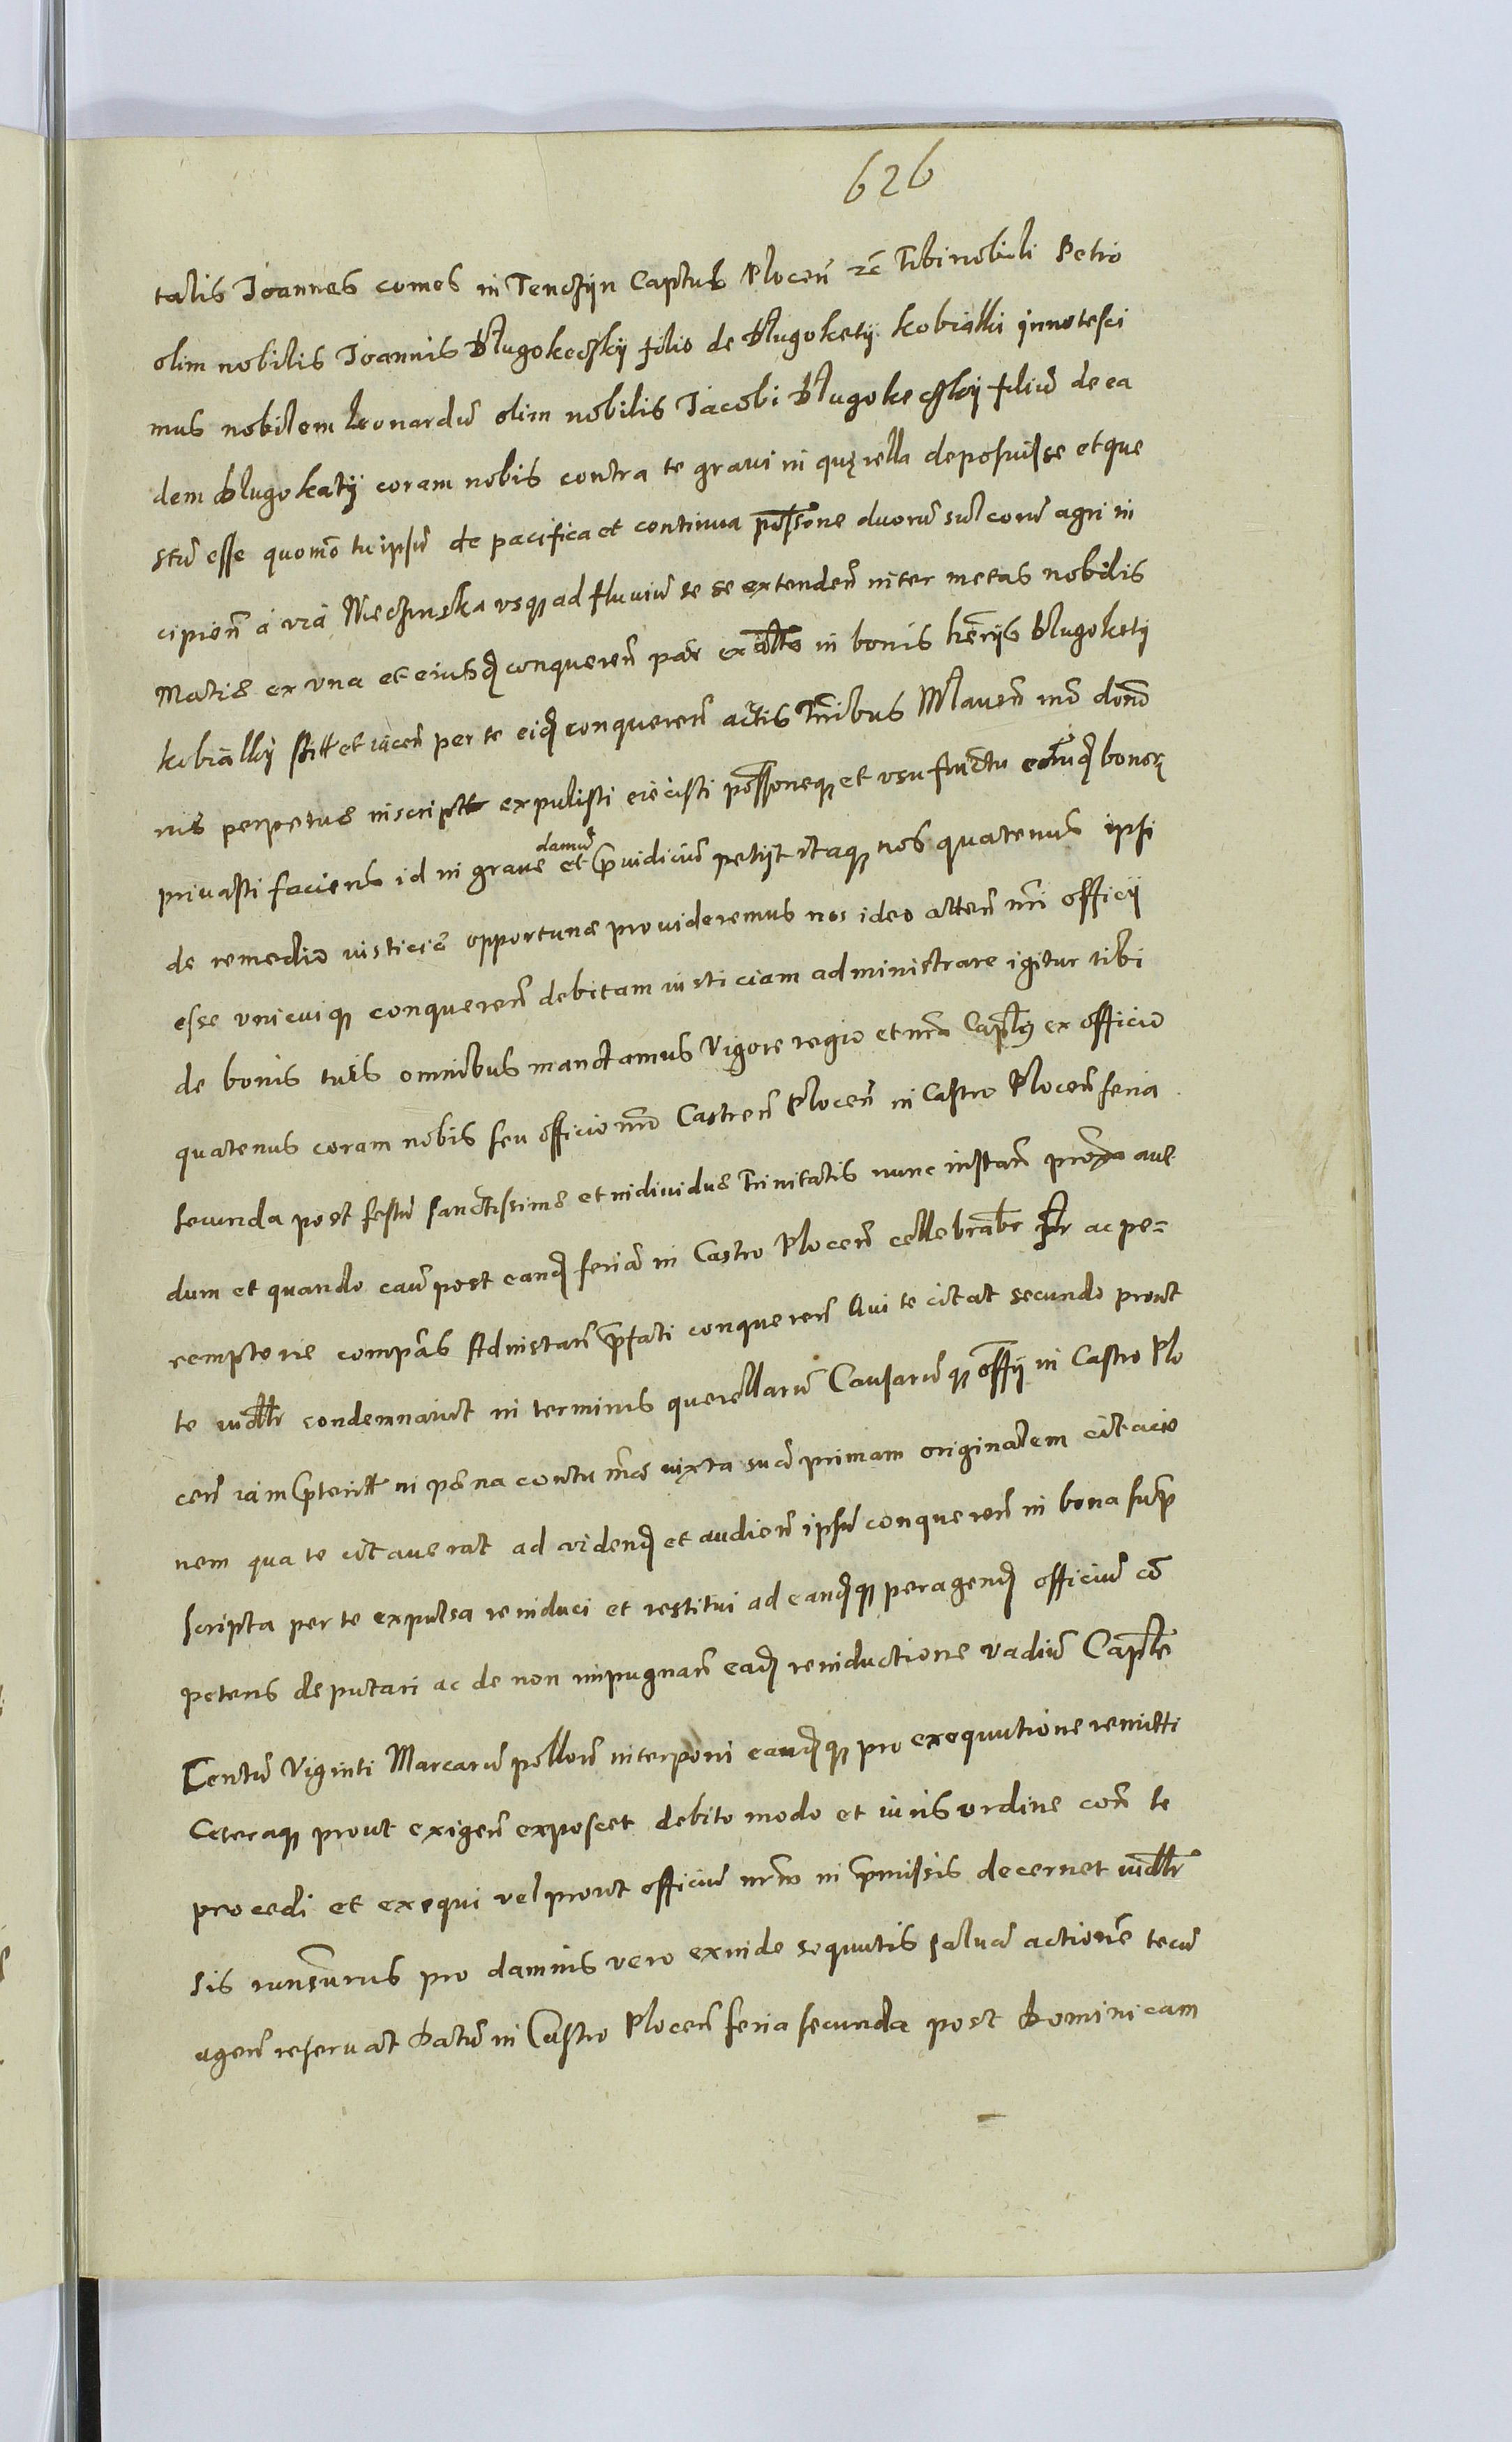 626
talis Joannes comes in Tenczijn Captus Plocen̄ etc̄ Tibi nobili Petro
olim nobilis Joannis Dlugokeczkij filio de Dlugoketij kobialki innotesci
mus nobilem Leonardū olim nobilis Jacobi Dlugokeczkij filiū de ea
dem Dlugokatij coram nobis contra te gravi in quęrella deposuisse et que
stū esse quomo tu ipsū de pacifica et continua possone duorū sulcorū agri in
cipien̄ a via Mieczinska usq ad fluviū se se extenden̄ inter metas nobilis
Matie ex una et eiusd conqueren̄ par ex altā in bonis hr̄ijs Dlugoketij
kobialkij sitt et iacen̄ per te eid conqueren̄ actis Trr̄ibus Mlaven̄ in̄o dono
nis perpetue inscript expulisti eiecisti possoneq et usufructu eorūd bonorꝫ
privasti faciens id in grave damnū et p̄iudiciū petijt itaq nos quatenus ipsi
de remedio iusticie opportune provideremus nos ideo atten̄ nr̄i officij
esse unicuiq conqueren̄ debitam iusticiam administrare igitur tibi
de bonis tuis omnibus mandamus Vigore regio et nr̄o Caplī ex officio
quatenus coram nobis seu officio nr̄o Castren̄ Plocen̄ in Castro Plocen̄ feria
secunda post festū sanctissime et individue Trinitatis nunc instan̄ prox̄a aut
dum et quando cau̅ post eand feriā in Castro Plocen̄ cellebrabr̄ pr̄ ac pe=
remptorie compās Ad instan̄ p̄fati conqueren̄ Qui te citat secundo prout
te iudlr̄ condemnavit in terminis querellarū Causarūq offij in Castro Plo
cen̄ iam p̄teritt in pęna contumā iuxta suā primam originalem citacio
nem qua te citaverat ad videnḍ et audien̄ ipsū conqueren̄ in bona sup̄
scripta per te expulsa reinduci et restitui ad eandq peragend officiū cō
petens deputari ac de non impugnan̄ ead reinductione vadiū Caplē
Centū Viginti Marcarū pollon̄ interponi eandq pro exequutione remitti
Ceteraq prout exigen̄ exposcet debito modo et iuris ordine con̄ te
procedi et exequi vel prout officiū nr̄m in p̄missis decernet iudlr̄
sis rn̄surus pro damnis vero exinde sequutis salvā actionē tecū
agen̄ reservat Datū in Castro Plocen̄ feria secunda post Dominicam